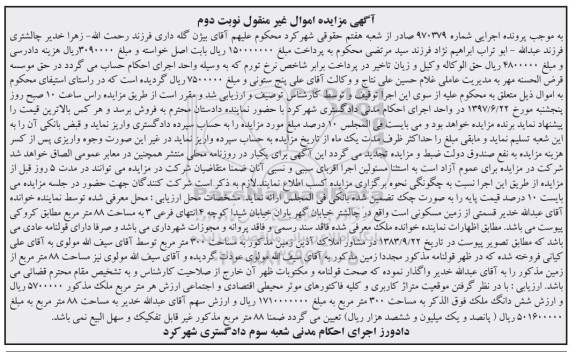 آگهی مزایده اموال غیر منقول نوبت دوم
به موجب پرونده اجرایی شماره ۹۷۰۳۷۹ صادر از شعبه هفتم حقوقی شهرکرد محکوم علیهم آقای بیژن گله داری فرزند رحمت الله- زهرا خدیر چالشتری
فرزند عبدالله - ابو تراب ابراهیم نژاد فرزند سید مرتضی محکوم به پرداخت مبلغ ۱۵۰۰۰۰۰۰۰ ریال بابت اصل خواسته و مبلغ ۳۰۹۰۰۰۰ ریال هزینه دادرسی
و مبلغ ۴۸۰۰۰۰۰ ریال حق الوکاله وکیل و زیان تاخیر در پرداخت برابر شاخص نرخ تورم که به وسیله واحد اجرای احکام حساب می گردد در حق موسسه
قرض الحسنه مهر به مدیریت عاملی غلام حسین علی نتاج و وکالت آقای علی پنج ستونی و مبلغ ۷۵۰۰۰۰۰ ریال گردیده است که در راستای استیفای محکوم
به اموال ذیل متعلق به محکوم علیه از سوی این اجرا توقیف و توسط کارشناس توصیف و ارزیابی شد و مقرر است از طریق مزایده راس ساعت ۱۰ صبح روز
پنجشنبه مورخ ۱۳۹۷/۶/۲۲ در واحد اجرای احکام مدنی دادگستری شهرکرد با حضور نماینده دادستان محترم به فروش برسد و هر کس بالاترین قیمت را
پیشنهاد نماید برنده مزایده خواهد بود و می بایست فی المجلس ۱۰ درصد مبلغ مورد مزایده را به حساب سپرده دادگستری واریز نماید و قبض بانکی آن را به
این شعبه تسلیم نماید و مابقی مبلغ را حداکثر ظرف مدت یک ماه از تاریخ مزایده به حساب سپرده واریز نماید در غیر این صورت وجوه واریزی پس از کسر
هزینه مزایده به نفع صندوق دولت ضبط و مزایده تجدید می گردد این آگهی برای یکبار در روزنامه محلی منتشر همچنین در معابر عمومی الصاق خواهد شد
شرکت در مزایده برای عموم آزاد است به استثنا مسئولین اجرا اقربای سببی و نسبی آنان ضمنا متقاضیان شرکت در مزایده می توانند در مدت ۵ روز قبل از
مزایده از طریق این اجرا نسبت به چگونگی نحوه برگزاری مزایده کسب اطلاع نمایند. لازم به ذکر است شرکت کنندگان جهت حضور در جلسه مزایده می
بایست ۱۰ درصد قیمت پایه را به صورت چک تضمین شده بانکی فی المجلس ارائه نمایند. مشخصات محل ارزیابی : محل معرفی شده توسط نماینده خوانده
آقای عبدالله خدیر قسمتی از زمین مسکونی است واقع در چالشتر خیابان گهر باران خیابان شیدا کوچه ۱۲ انتهای فرعی ۳ به مساحت ۸۸ متر مربع مطابق کروکی
پیوست می باشد. مطابق اظهارات نماینده خوانده ملک معرفی شده فاقد سند رسمی و فاقد پروانه و مجوزات شهرداری می باشد و صرفا دارای قولنامه عادی می
باشد که مطابق تصویر پیوست در تاریخ ۱۳۸۳/۹/۲۲ در مشاور املاک آذین زمین مذکور به مساحت ۳۰۰ متر مربع توسط آقای سیف الله مولوی به آقای علی
کیانی فروخته شده که در ظهر قولنامه مذکور مجددا زمین مذکور به آقای سیف الله مولوی عودت گردیده و آقای سیف الله مولوی نیز مساحت ۸۸ متر مربع از
زمین مذکور را به آقای عبدالله خدیر واگذار نموده که صحت قولنامه و مکتوبات ظهر آن خارج از صلاحیت کارشناس و به تشخیص مقام محترم قضائی می
باشد. ارزیابی : با در نظر گرفتن موقعیت متراژ کاربری و کلیه فاکتورهای موثر محیطی اقتصادی و اجتماعی ارزش هر متر مربع ملک مذکور ۵۷۰۰۰۰۰ ریال
و ارزش شش دانگ ملک فوق الذکر به مساحت ۳۰۰ متر مربع به مبلغ ۱۷۱۰۰۰۰۰۰۰ ریال و ارزش سهم آقای عبدالله خدیر به مساحت ۸۸ متر مربع به مبلغ
۵۰۱۶۰۰۰۰۰ ریال ( پانصد و یک میلیون و ششصد هزار ریال) تعیین می گردد ضمنا ۸۸ متر مربع مذکور غیر قابل تفکیک و سهل البیع نمی باشد.
دادورز اجرای احکام مدنی شعبه سوم دادگستری شهرکرد